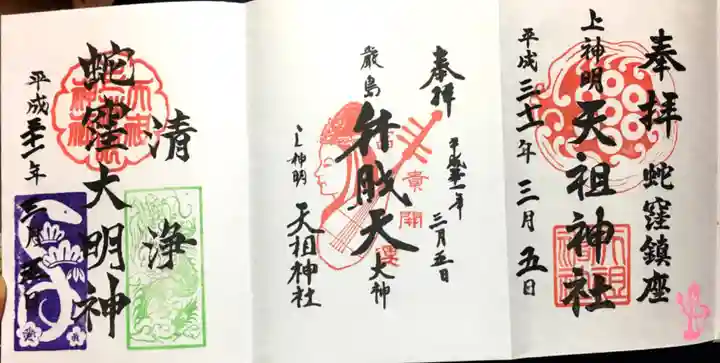 奉拝
蛇窪鎮座
上神明
天祖神社
平成三十一年三月五日
奉拝
平成三十一年三月五日
厳島
弁財天
大神
上神明
天祖神社
清浄
蛇窪大明神
平成三十一年三月五日